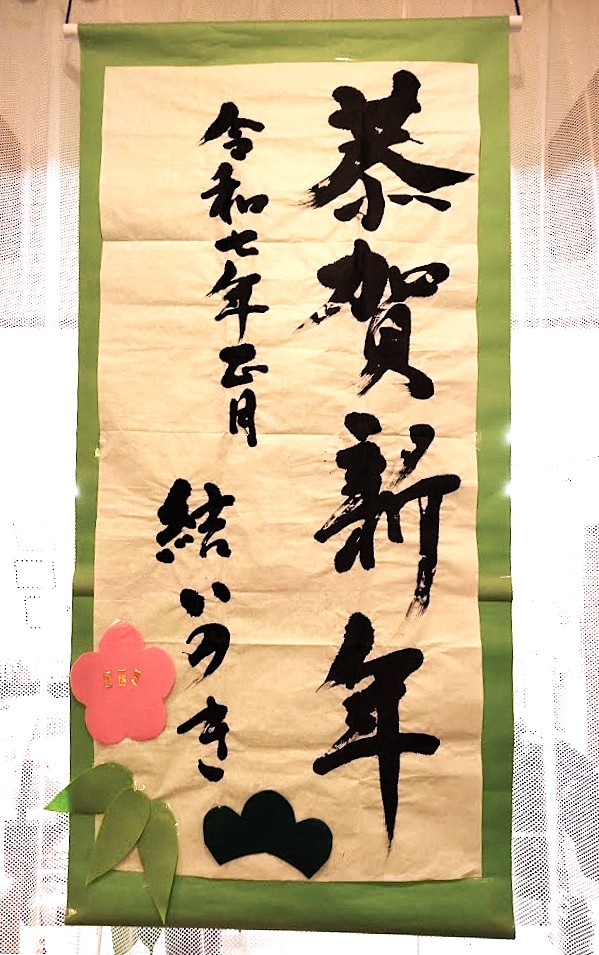 恭賀新年
令和七年正月
結いのき